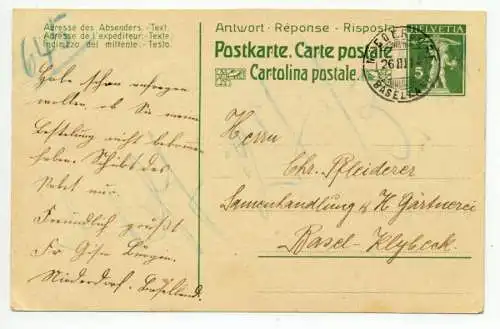 Adresse des Absenders. - Text.
Adresse de l'expéditeur. - Texte.
Indirizzo del mittente. - Testo.
645
Antwort - Réponse - Risposta
Postkarte. Carte postale
Cartolina postale.
HELVETIA
5
NIEDERDORF
26.III.1
BASELLAND
Habe schon anfragen
wollen, ob Sie meine
Bestellung nicht bekommen
haben.
nur.
Freundlich grüsst
Fr.
Niederdorf. Baselland.
Herrn
Chr. Pfleiderer
Samenhandlung & H. Gärtnerei
Basel-Klybeck.